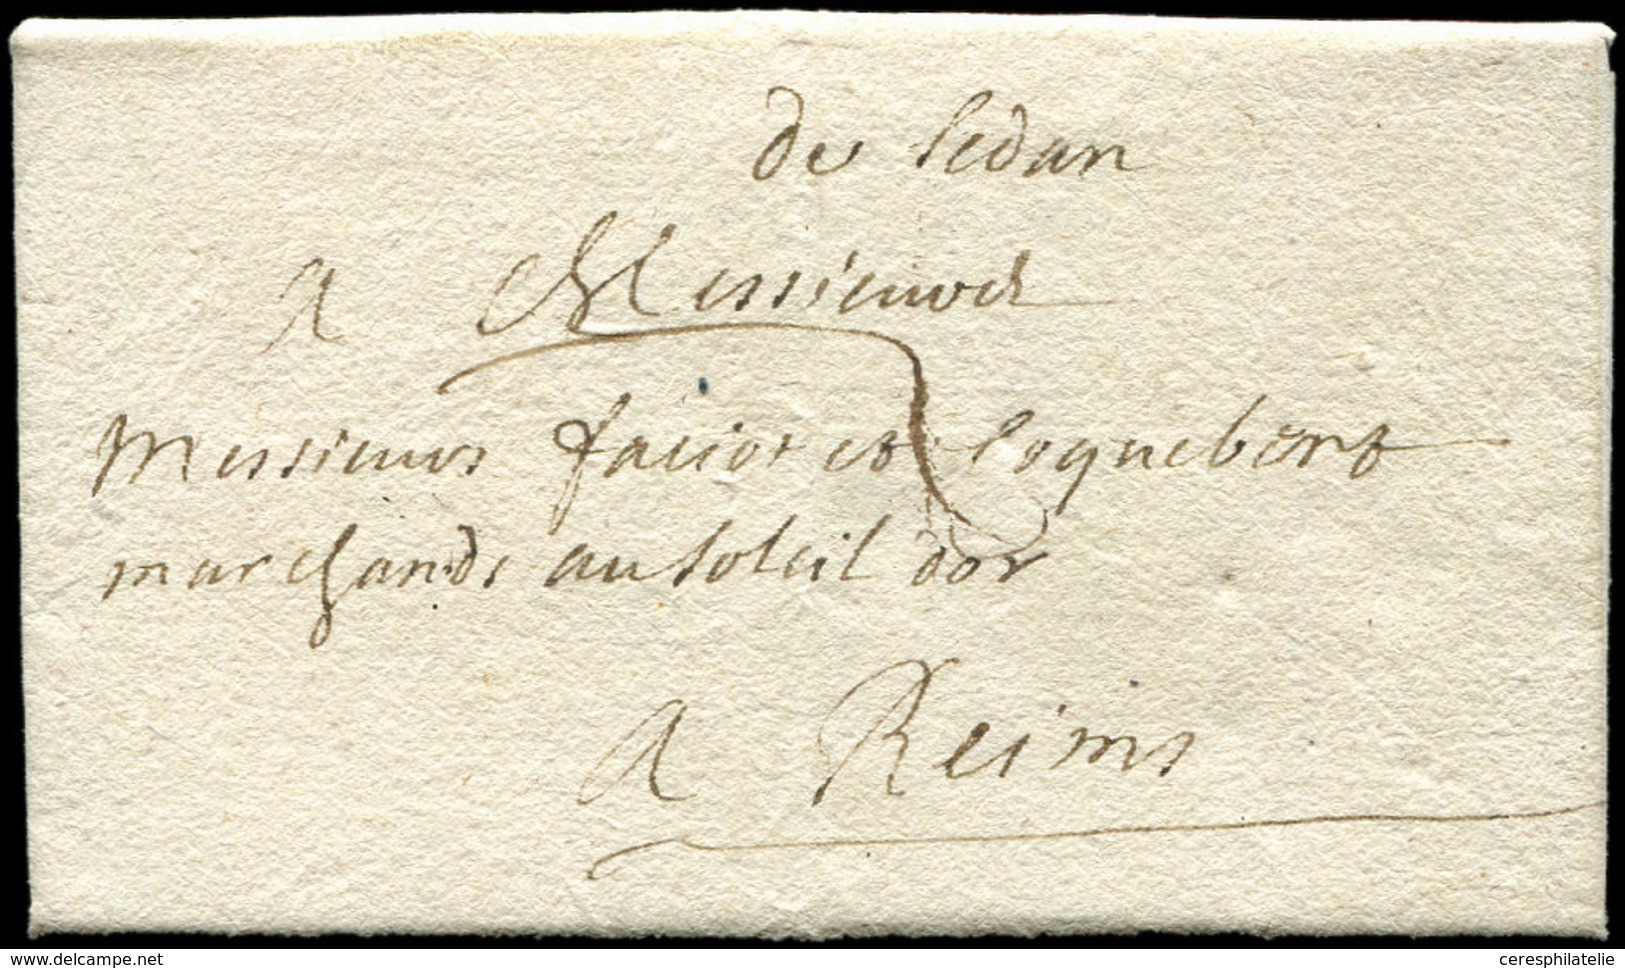 de Sedan
a Messieurs
Messieurs favior et Coquebert
marchands au Soleil dor
a Reims
www.delcampe.net
ceresphilatelie